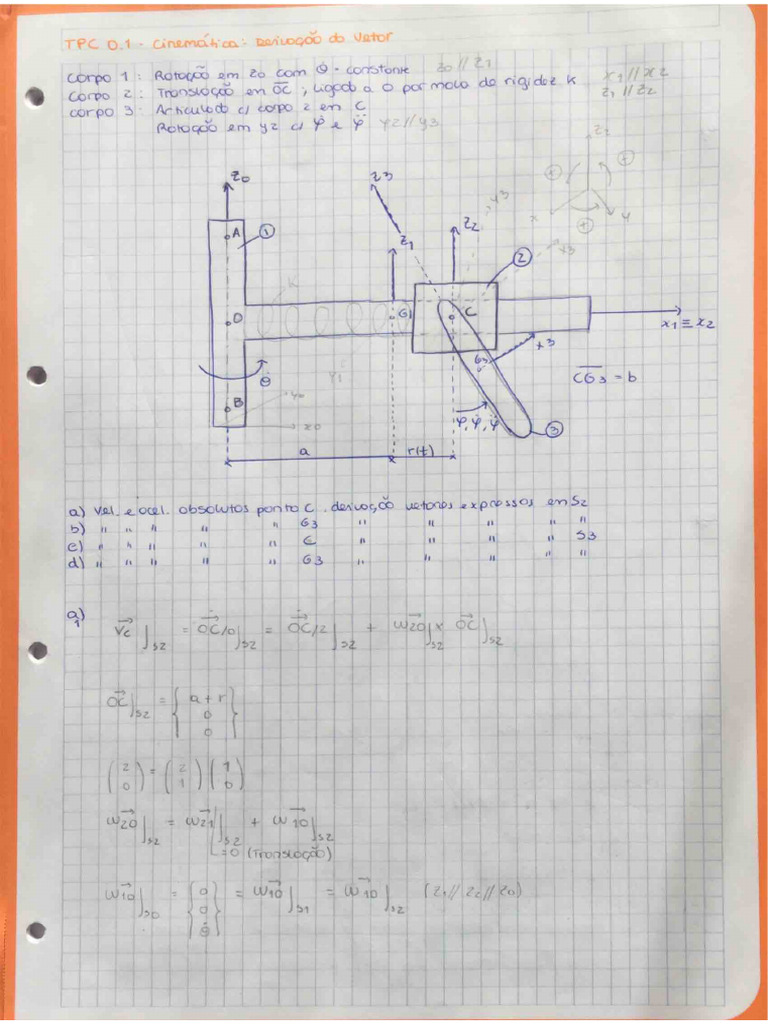 TPC 0.1 - Cinemática: Derivação do Vetor
Corpo 1: Rotação em z0 com θ̇ - constante z0 // z1
Corpo 2: Translação em OC, ligado a O por mola de rigidez k x1 // x2
Corpo 3: Articulado c/ corpo 2 em C z1 // z2
Rotação em y2 c/ φ̇ e φ̈ y2 // y3
z2
x
y
(+)
(+)
(+)
z0
z3
y3
A
1
z1
z2
2
x3
K
O
G1
C
x1 ≡ x2
θ̇
y1
G3
x3
CG3 = b
B
y0
x0
φ, φ̇, φ̈
3
a
r(t)
a) Vel. e acel. absolutos ponto C. derivação vetores expressos em S2
b) " " " " " G3 " " " " "
c) " " " " " C " " " " S3
d) " " " " " G3 " " " " "
a)
1
Vc]S2 = OC/0]S2 = OC/2]S2 + ω20]S2 × OC]S2
OC]S2 = { a+r
0
0 }
(2 0) = (2 1) (1 0)
ω20]S2 = ω21]S2 + ω10]S2
= 0 (Translação)
ω10]S0 = { 0
0
θ̇ } = ω10]S1 = ω10]S2 (z1 // z2 // z0)